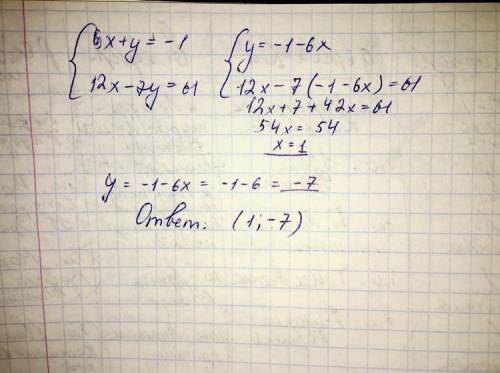 6x+y = -1
12x-7y = 61
y = -1-6x
12x-7(-1-6x) = 61
12x+7+42x=61
54x = 54
x = 1
y = -1-6x = -1-6 = -7
Ответ: (1; -7)